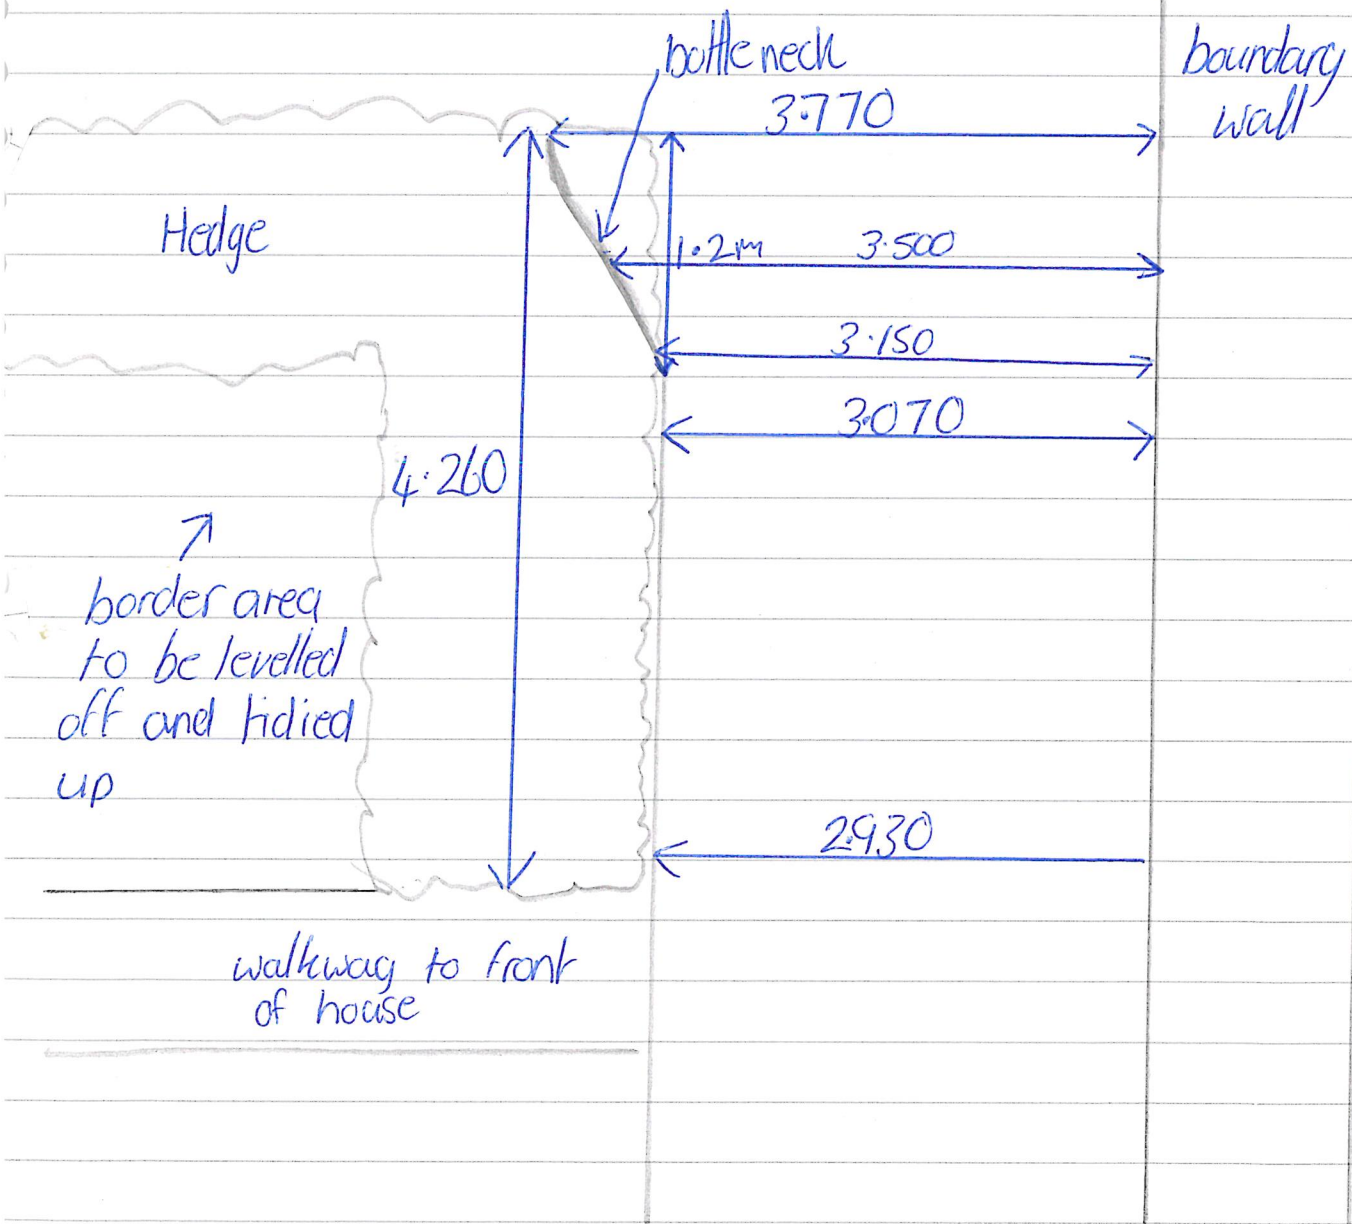 bottleneck
boundary
wall
3.770
Hedge
1.2m
3.500
3.150
3.070
4.260
border area
to be levelled
off and tidied
up
2.930
walkway to front
of house